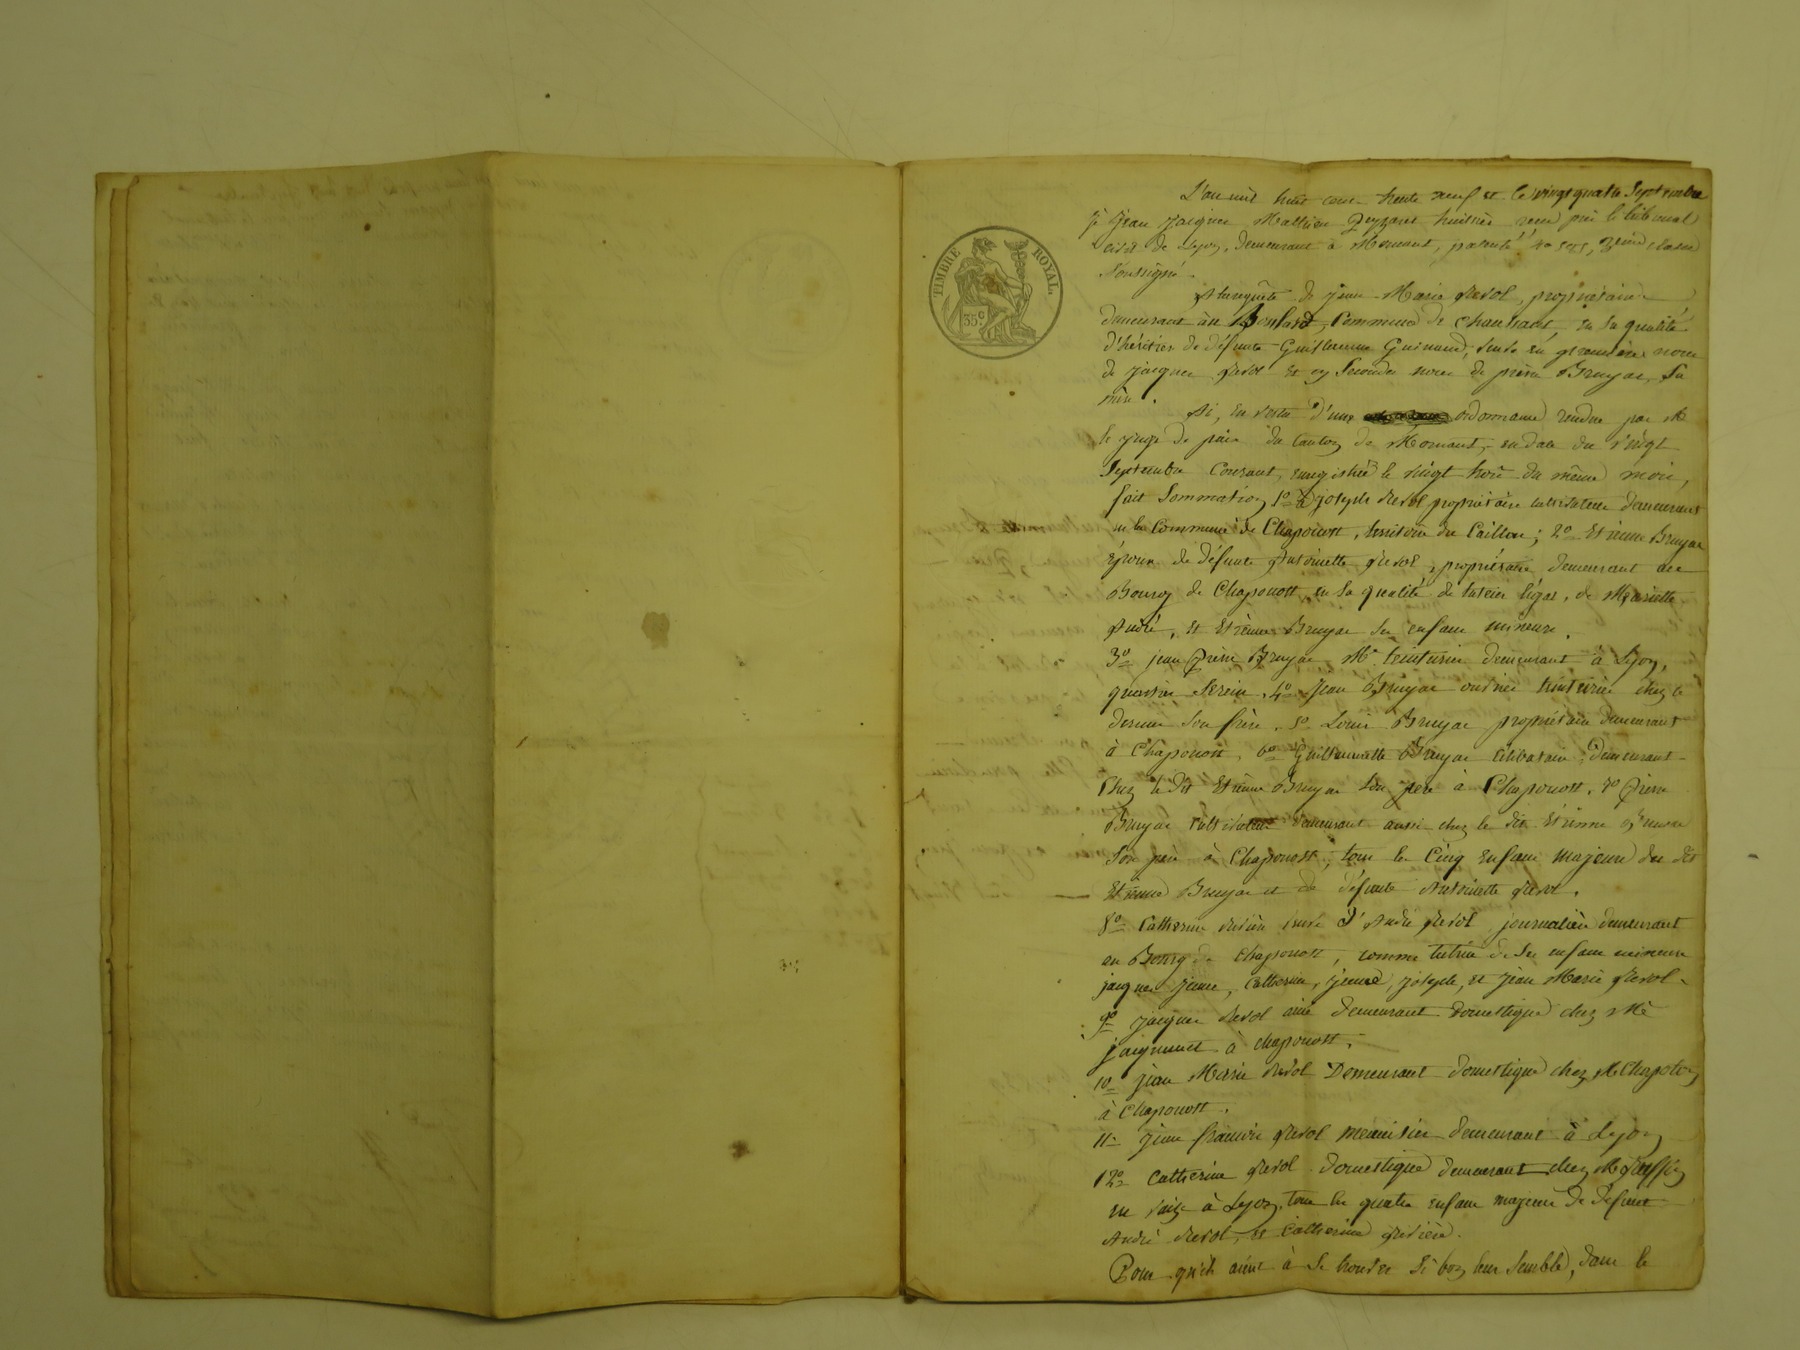 TIMBRE ROYAL.
35c
L'an mil huit cent trente neuf et le vingt quatre Septembre
Je Jean Jacques Mathieu huissier reçu près le tribunal
civil de Lyon, demeurant à Mornant, patenté No 3eme classe
Soussigné.
A la requête de Jean Marie Revol, propriétaire
demeurant au Boulard, Commune de Chaussant, en sa qualité
d'héritier de défunte Guillermine Guinand, veuve en première noce
de Jacques Revol et en Seconde noce de pierre Bruyas, sa
mère.
Ai, en vertu d'une ordonnance rendue par Mr
le juge de paix du Canton de Mornant, en date du vingt
Septembre Courant, enregistrée le vingt trois du même mois,
fait Sommation 1o à joseph Revol propriétaire cultivateur demeurant
en la Commune de Chaponost, territoire du Caillou; 2o Etienne Bruyas
époux de défunte Antoinette Revol, propriétaire demeurant au
Bourg de Chaponost, en sa qualité de tuteur légal, de Mariette
André, et Etienne Bruyas ses enfans mineurs.
3o jean pierre Bruyas Me teinturier demeurant à Lyon,
quartier Serein, 4o Jean Bruyas ouvrier teinturier chez ce
dernier son frère. 5o Louis Bruyas propriétaire demeurant
à Chaponost, 6o Guillaumette Bruyas célibataire demeurant
Chez le dit Etienne Bruyas son père à Chaponost, 7o Pierre
Bruyas cultivateur demeurant aussi chez le dit Etienne Bruyas
son père à Chaponost, tous les Cinq enfans majeurs du dit
Etienne Bruyas et de défunte Antoinette Revol.
8o Catherine veuve d'André Revol journalière demeurant
au Bourg de Chaponost, comme tutrice de ses enfans mineurs
jacques jeune, Catherine, jeune, joseph, et Jean Marie Revol.
9o Jacques Revol ainé demeurant domestique chez Me
à Chaponost.
10 jean Marie Revol Demeurant domestique chez M
à Chaponost.
11 Jean Revol menuisier demeurant à Lyon
12o Catherine Revol domestique demeurant chez M
en à Lyon, tous les quatre enfans majeurs de défunt
André Revol, et Catherine
Pour qu'ils aient à se trouver si bon leur semble, dans le